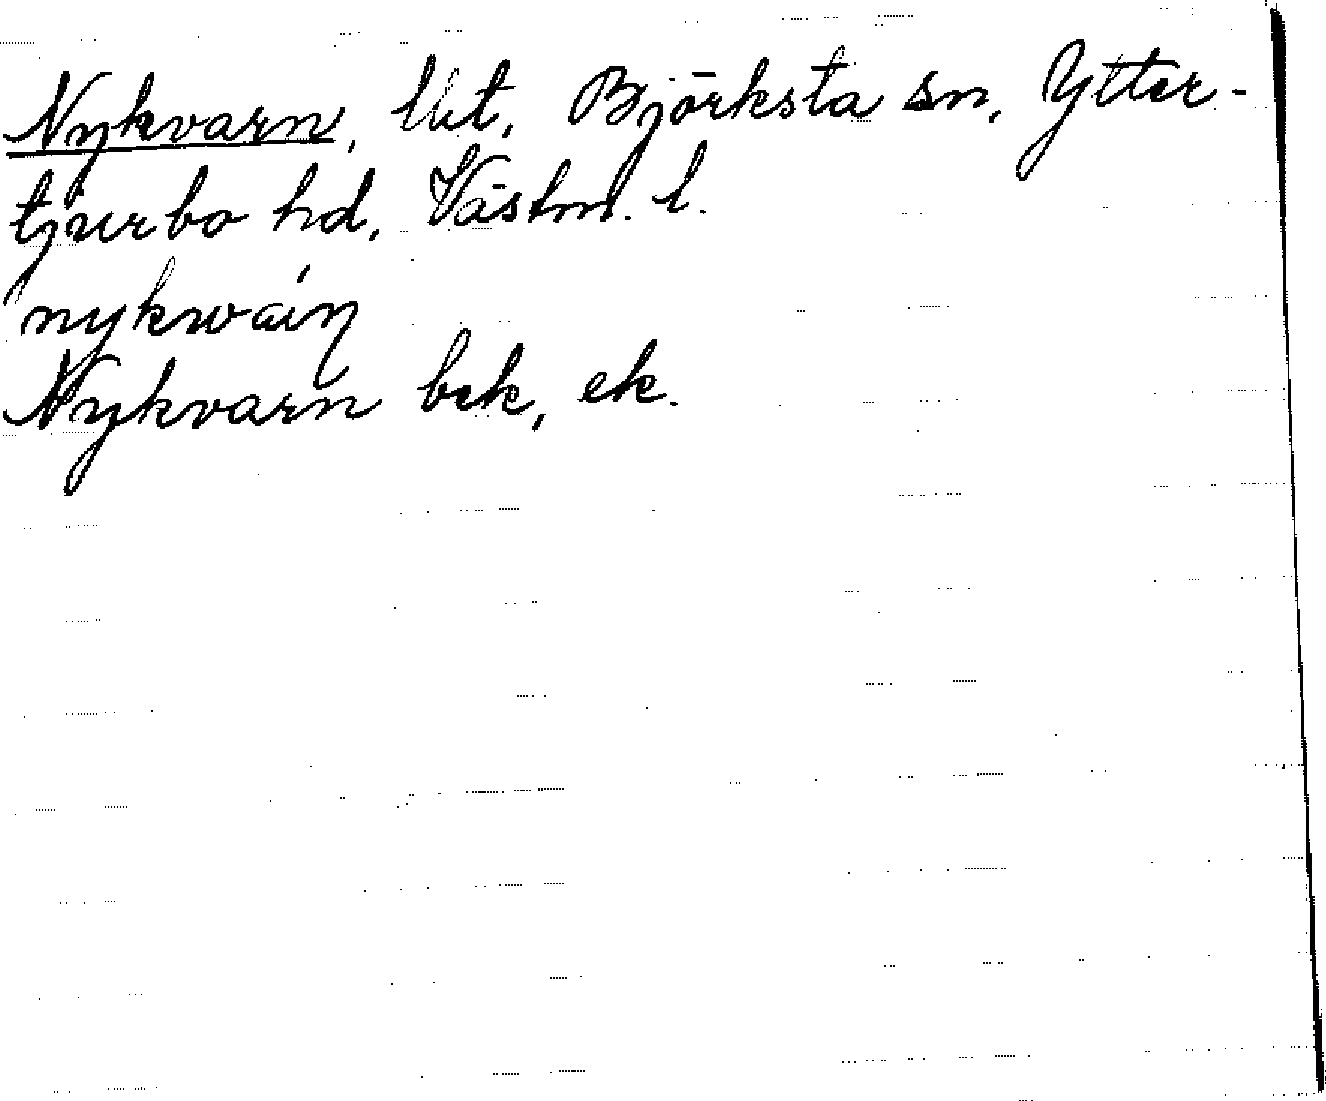 Nykvarn, lht, Björksta sn, Ytter-
tjurbo hd, Västm. l.
nykwáıŋ
Nykvarn bek, ek.